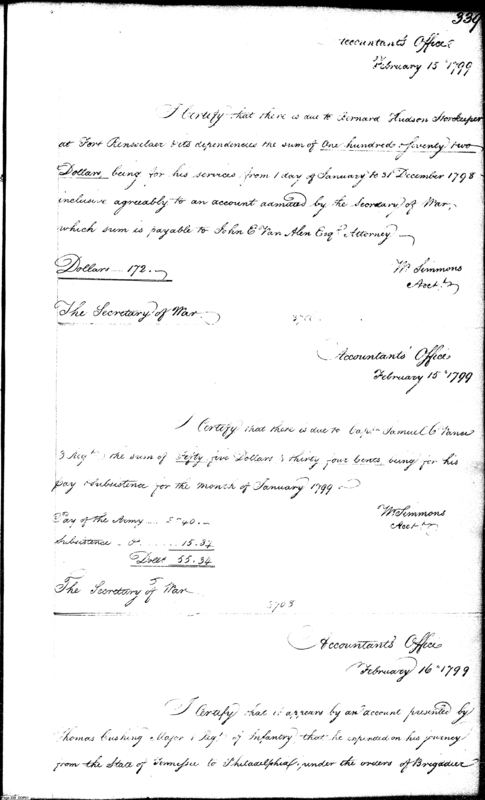 339
Accountant's Office
February 15th 1799
I Certify that there is due to Bernard Hudson Storekeeper
at Fort Renselaer & its dependencies the sum of One hundred & Seventy two
Dollars, being for his services from 1 day of January to 31st December 1798
inclusive agreably to an account admitted by the Secretary of War,
which sum is payable to John E Van Alen Esqr. Attorney
Dollars 172.
Wm Simmons
Acct.
The Secretary of War
Accountants' Office
February 15th 1799
I Certify that there is due to Captn Samuel C Vance
3 Regt. the sum of Fifty five Dollars & thirty four Cents being for his
pay & subsistence for the month of January 1799
Pay of the Army $ 40.
Wm Simmons
Acct.
Subsistence do 15.34
Dolls 55.34
The Secretary of War
3703
Accountant's Office
February 16th 1799
I Certify that it appears by an account presented by
Thomas Cushing Major 1 Regt. of Infantry that he expended on his journey
from the State of Tennessee to Philadelphia, under the orders of Brigadier